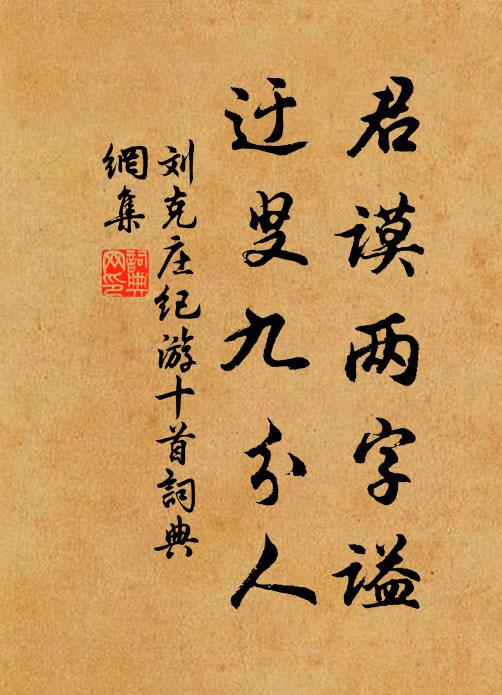 君谟两字谥
迂叟九分人
刘克庄纪游十首詞典
網集
詞典
网印